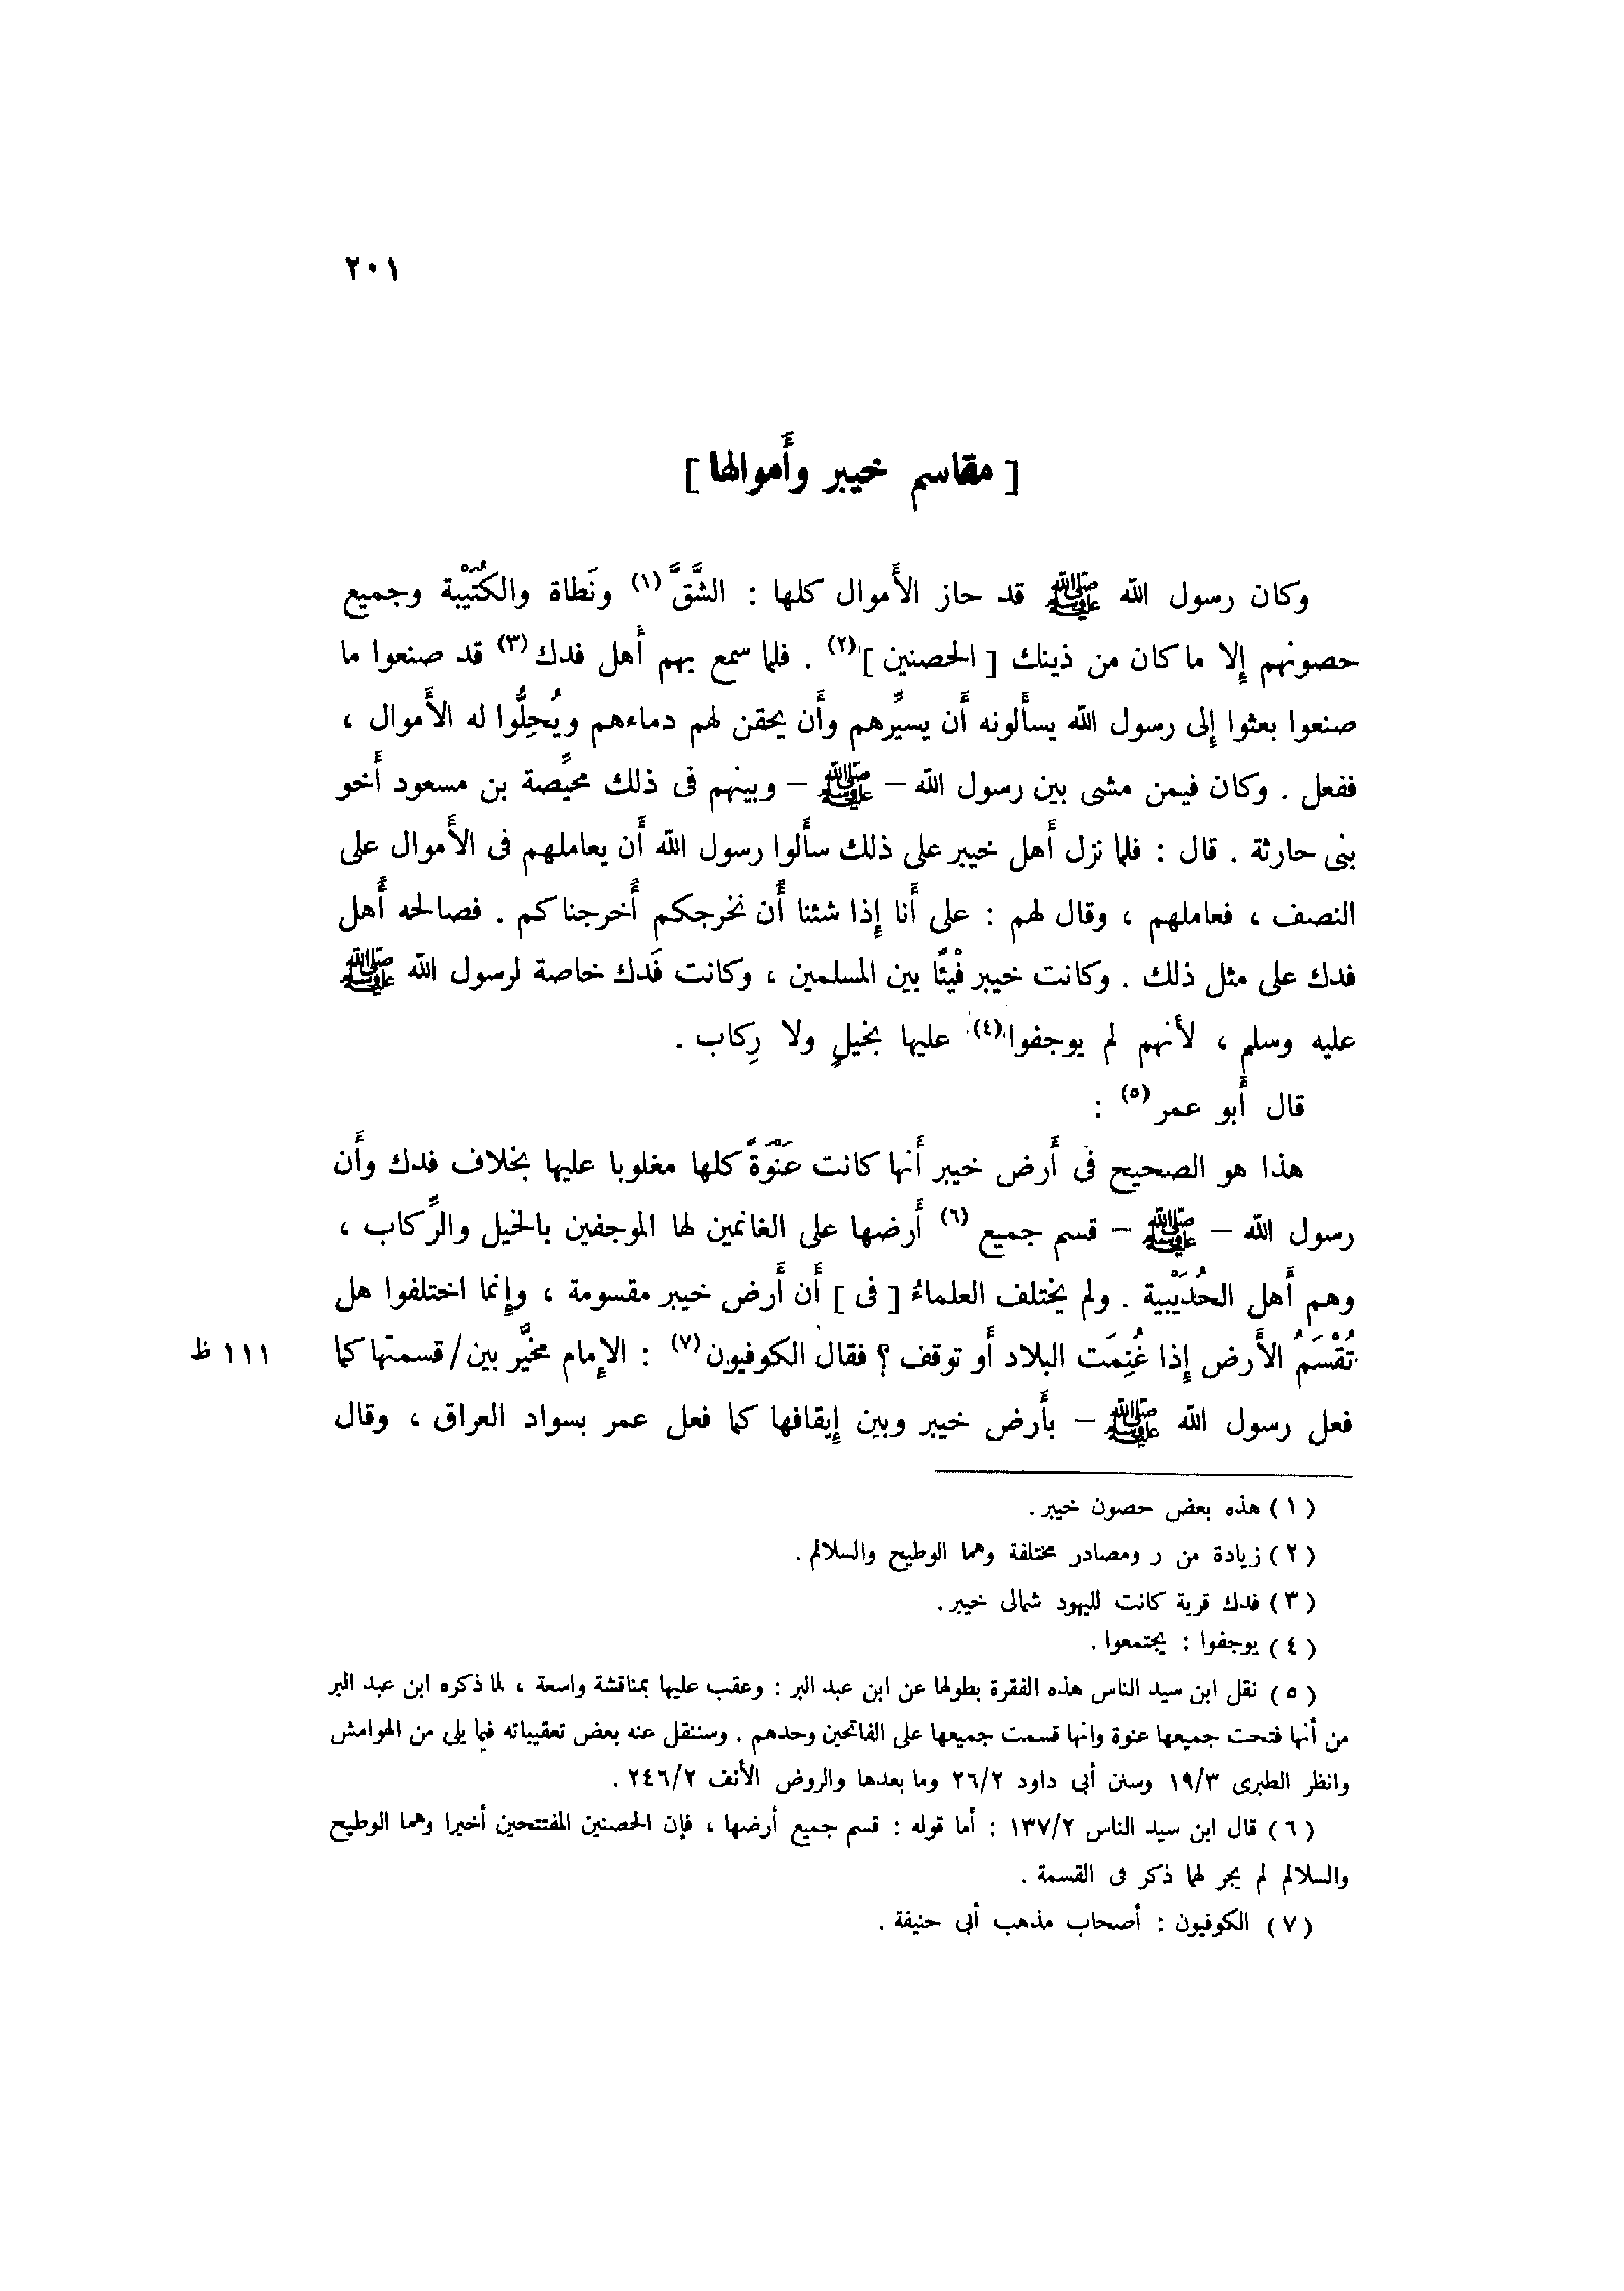 ٢٠١
[ مقاسم خيبر وأَموالها ]
وكان رسول الله ﷺ قد حاز الأَموال كلها : الشَّقَّ (١) ونَطاة والكُتَيْبة وجميع
حصونهم إِلا ما كان من ذينك [ الحصنين ] (٢) . فلما سمع بهم أَهل فدك (٣) قد صنعوا ما
صنعوا بعثوا إِلى رسول الله يسأَلونه أَن يسيِّرهم وأَن يحقن لهم دماءهم ويُحِلُّوا له الأَموال ،
ففعل . وكان فيمن مشى بين رسول الله – ﷺ – وبينهم فى ذلك محيِّصة بن مسعود أَخو
بنى حارثة . قال : فلما نزل أَهل خيبر على ذلك سأَلوا رسول الله أَن يعاملهم فى الأَموال على
النصف ، فعاملهم ، وقال لهم : على أَنا إِذا شئنا أَن نخرجكم أَخرجناكم . فصالحه أَهل
فدك على مثل ذلك . وكانت خيبر فْيئًا بين المسلمين ، وكانت فَدك خاصة لرسول الله ﷺ
عليه وسلم ، لأَنهم لم يوجفوا (٤) عليها بخيلٍ ولا رِكاب .
قال أَبو عمر (٥) :
هذا هو الصحيح فى أَرض خيبر أَنها كانت عَنْوَةً كلها مغلوبا عليها بخلاف فدك وأَن
رسول الله – ﷺ – قسم جميع (٦) أَرضها على الغانمين لها الموجفين بالخيل والرِّكاب ،
وهم أَهل الحُدَيْبية . ولم يختلف العلماءُ [ فى ] أَن أَرض خيبر مقسومة ، وإِنما اختلفوا هل
تُقْسَمُ الأَرض إِذا غُنِمَت البلاد أَو توقف ؟ فقال الكوفيون (٧) : الإِمام مخيَّر بين / قسمتها كما
١١١ ظ
فعل رسول الله ﷺ – بأَرض خيبر وبين إِيقافها كما فعل عمر بسواد العراق ، وقال
( ١ ) هذه بعض حصون خيبر .
( ٢ ) زيادة من ر ومصادر مختلفة وهما الوطيح والسلالم .
( ٣ ) فدك قرية كانت لليهود شمالى خيبر .
( ٤ ) يوجفوا : يجتمعوا .
( ٥ ) نقل ابن سيد الناس هذه الفقرة بطولها عن ابن عبد البر : وعقب عليها بمناقشة واسعة ، لما ذكره ابن عبد البر
من أنها فتحت جميعها عنوة وانها قسمت جميعها على الفاتحين وحدهم . وسننقل عنه بعض تعقيباته فيما يلى من الهوامش
وانظر الطبرى ١٩/٣ وسنن أبى داود ٢٦/٢ وما بعدها والروض الأنف ٢٤٦/٢ .
( ٦ ) قال ابن سيد الناس ١٣٧/٢ : أما قوله : قسم جميع أرضها ، فإن الحصنين المفتتحين أخيرا وهما الوطيح
والسلالم لم يجر لهما ذكر فى القسمة .
( ٧ ) الكوفيون : أصحاب مذهب أبى حنيفة .